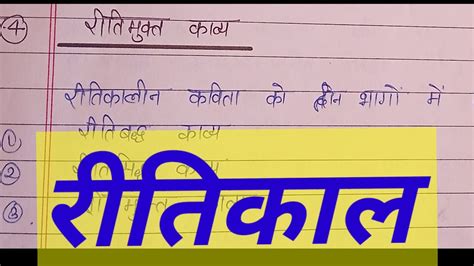 ④ रीतिमुक्त काव्य
रीतिकालीन कविता को तीन भागों में
① रीतिबद्ध काव्य
② काव्य
③
रीतिकाल